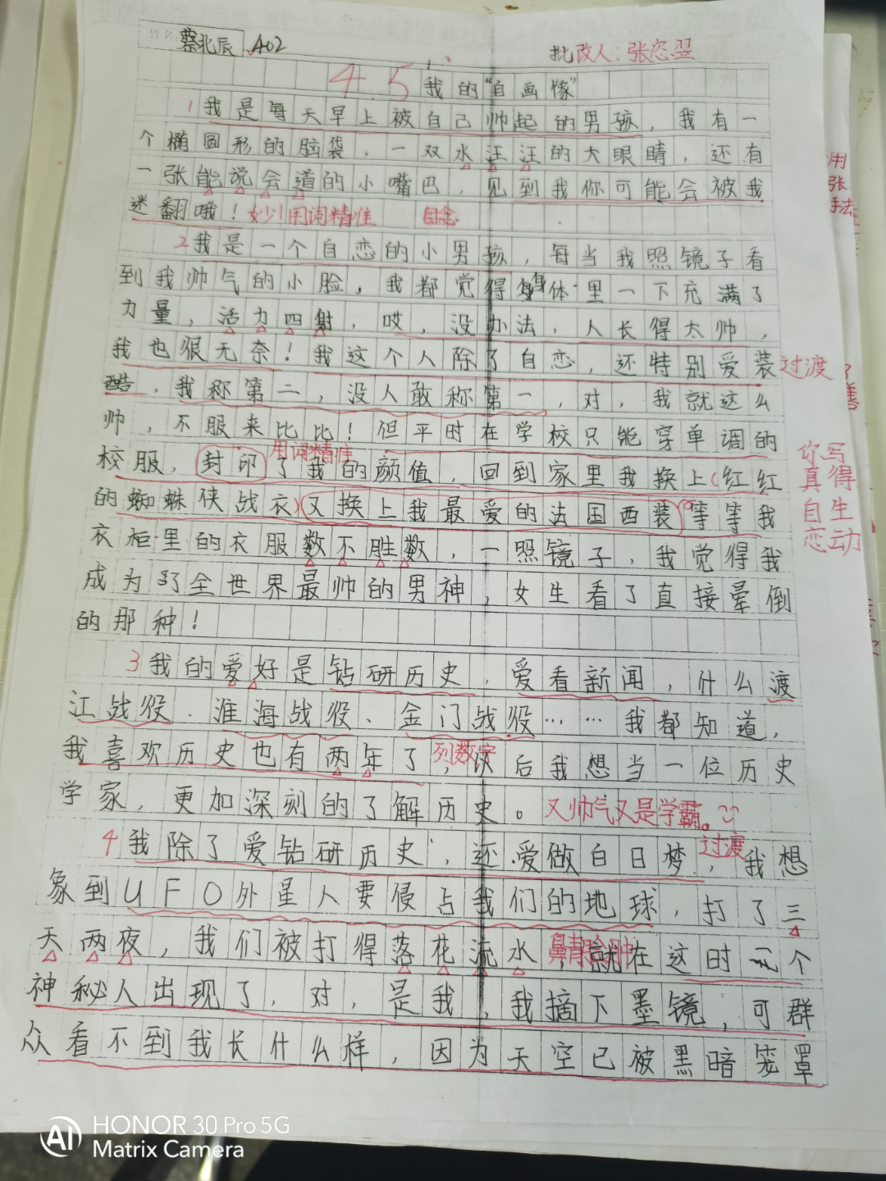 蔡北辰 402
批改人：张恣翌
45
我的“自画像”
1我是每天早上被自己帅起的男孩，我有一
个椭圆形的脑袋，一双水汪汪的大眼睛，还有
一张能说会道的小嘴巴，见到我你可能会被我
迷翻哦！妙！用词精准 自恋
2我是一个自恋的小男孩，每当我照镜子看
到我帅气的小脸，我都觉得身体里一下充满了
力量，活力四射，哎，没办法，人长得太帅，
我也狠无奈！我这个人除了自恋，还特别爱装 过渡
酷，我称第二，没人敢称第一，对，我就这么
帅，不服来比比！但平时在学校只能穿单调的
用词精准
校服，封印了我的颜值，回到家里我换上(红红
的蜘蛛侠战衣)(又换上我最爱的法国西装)等等我
你写得真自恋生动
衣柜里的衣服数不胜数，一照镜子，我觉得我
成为了全世界最帅的男神，女生看了直接晕倒
的那种！
3我的爱好是钻研历史，爱看新闻，什么渡
江战役、淮海战役、金门战役……我都知道，
我喜欢历史也有两年了，以后我想当一位历史
列数字
学家，更加深刻的了解历史。又帅气又是学霸。
4我除了爱钻研历史，还爱做白日梦，我想
过渡
象到UFO外星人要侵占我们的地球，打了三
天两夜，我们被打得落花流水，就在这时一个
神秘人出现了，对，是我，我摘下墨镜，可群
众看不到我长什么样，因为天空已被黑暗笼罩
用
张
手法
HONOR 30 Pro 5G
Matrix Camera